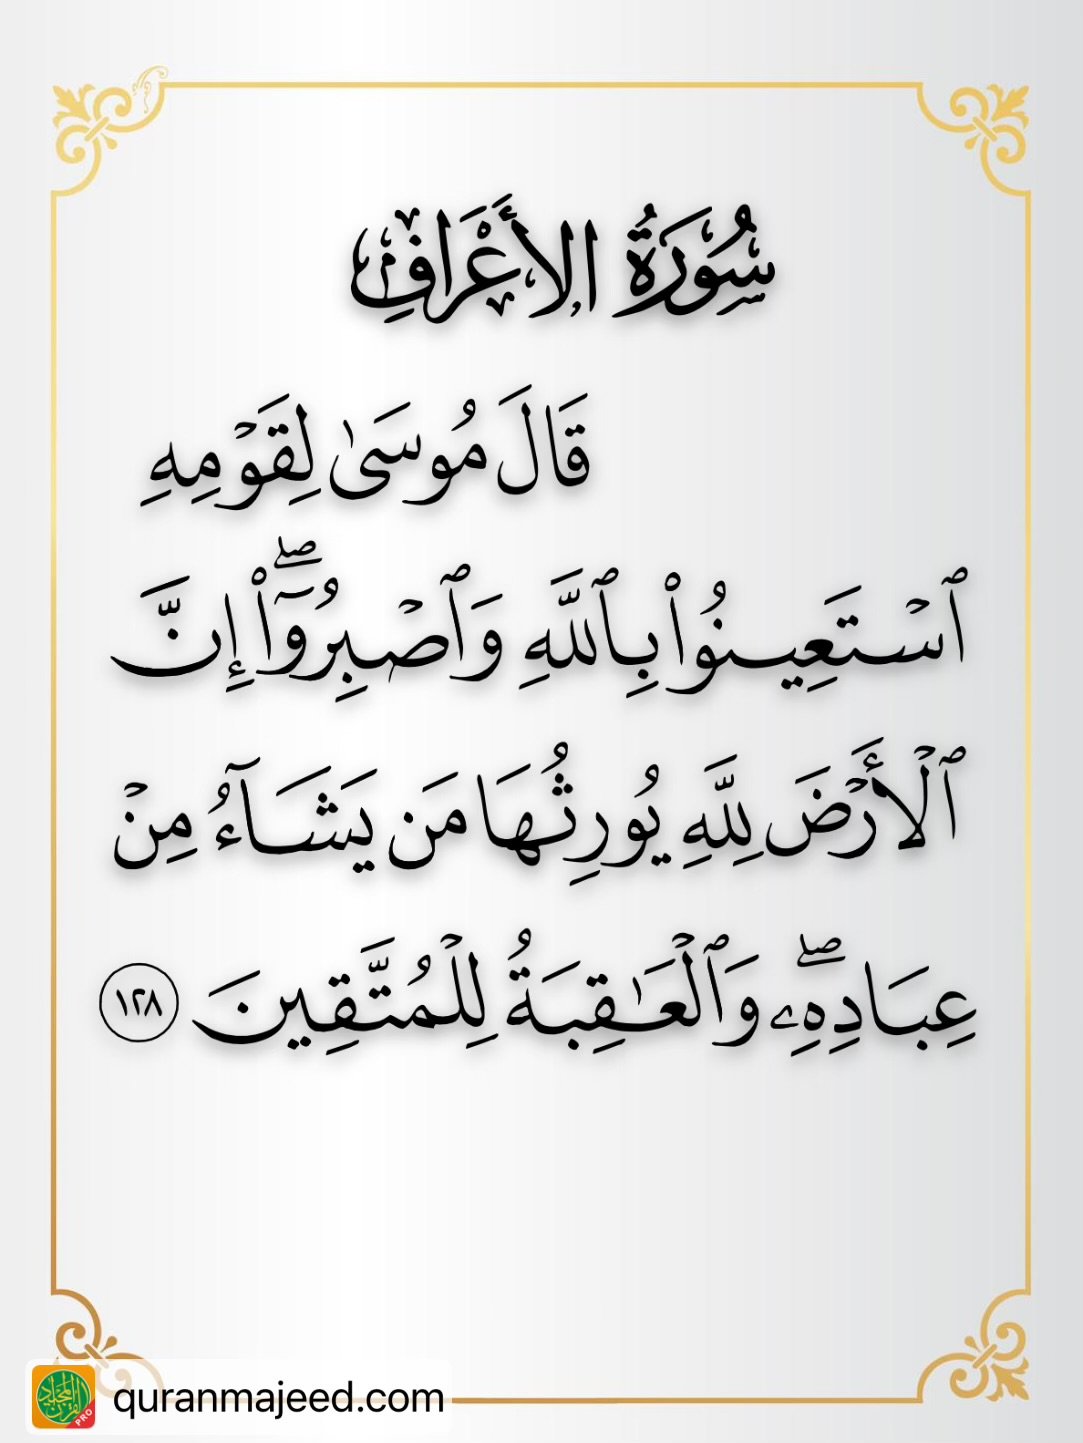 سُورَةُ الأَعْرَافِ
قَالَ مُوسَىٰ لِقَوْمِهِ
ٱسْتَعِينُوا۟ بِٱللَّهِ وَٱصْبِرُوٓا۟ ۖ إِنَّ
ٱلْأَرْضَ لِلَّهِ يُورِثُهَا مَن يَشَآءُ مِنْ
عِبَادِهِۦ ۖ وَٱلْعَـٰقِبَةُ لِلْمُتَّقِينَ ١٢٨
quranmajeed.com